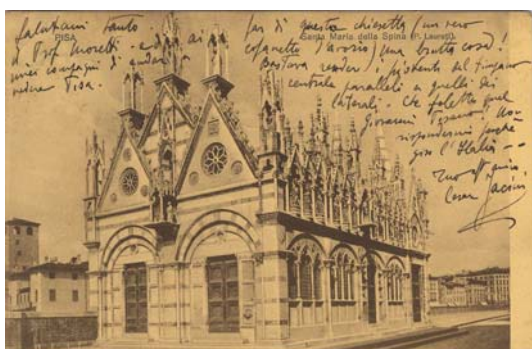 PISA
Santa Maria della Spina (P. Laurati)
Salutami tanto
il Prof. Moretti e di ai
miei compagni di andare a
vedere Pisa.
far di questa chiesetta (un vero
cofanetto d'avorio) una brutta cosa!
Bastava render i pistenti del timpano
centrale paralleli a quelli dei
laterali. Che
Giovanni Pisano!
rispondermi perché
giro l'Italia --
tuo aff. amico
Cesar